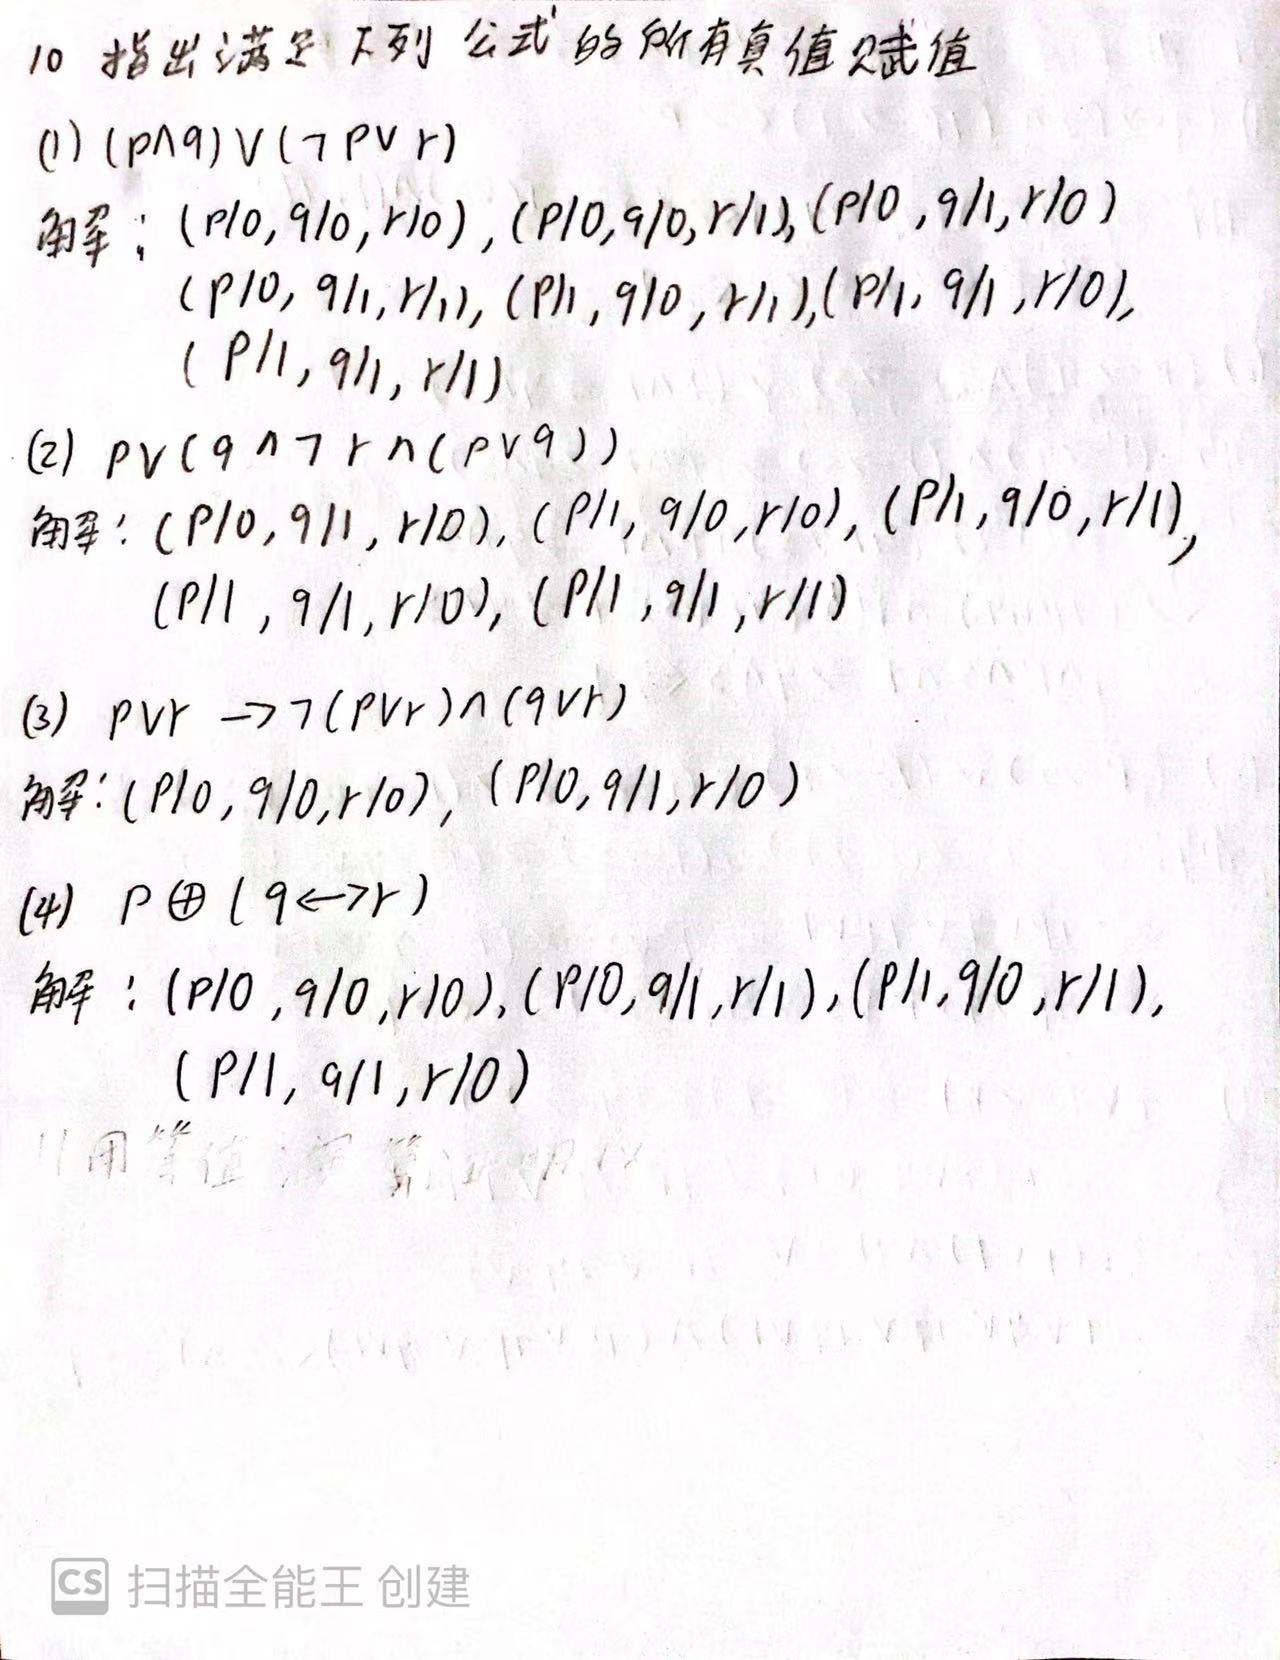 10 指出满足下列公式的所有真值赋值
(1) (p∧q)∨(¬p∨r)
解：(p/0,q/0,r/0),(p/0,q/0,r/1),(p/0,q/1,r/0)
(p/0,q/1,r/1),(p/1,q/0,r/1),(p/1,q/1,r/0),
(p/1,q/1,r/1)
(2) p∨(q∧¬r∧(p∨q))
解：(p/0,q/1,r/0),(p/1,q/0,r/0),(p/1,q/0,r/1),
(p/1,q/1,r/0),(p/1,q/1,r/1)
(3) p∨r→¬(p∨r)∧(q∨r)
解：(p/0,q/0,r/0),(p/0,q/1,r/0)
(4) p⊕(q↔r)
解：(p/0,q/0,r/0),(p/0,q/1,r/1),(p/1,q/0,r/1),
(p/1,q/1,r/0)
11用等值演算
CS 扫描全能王 创建